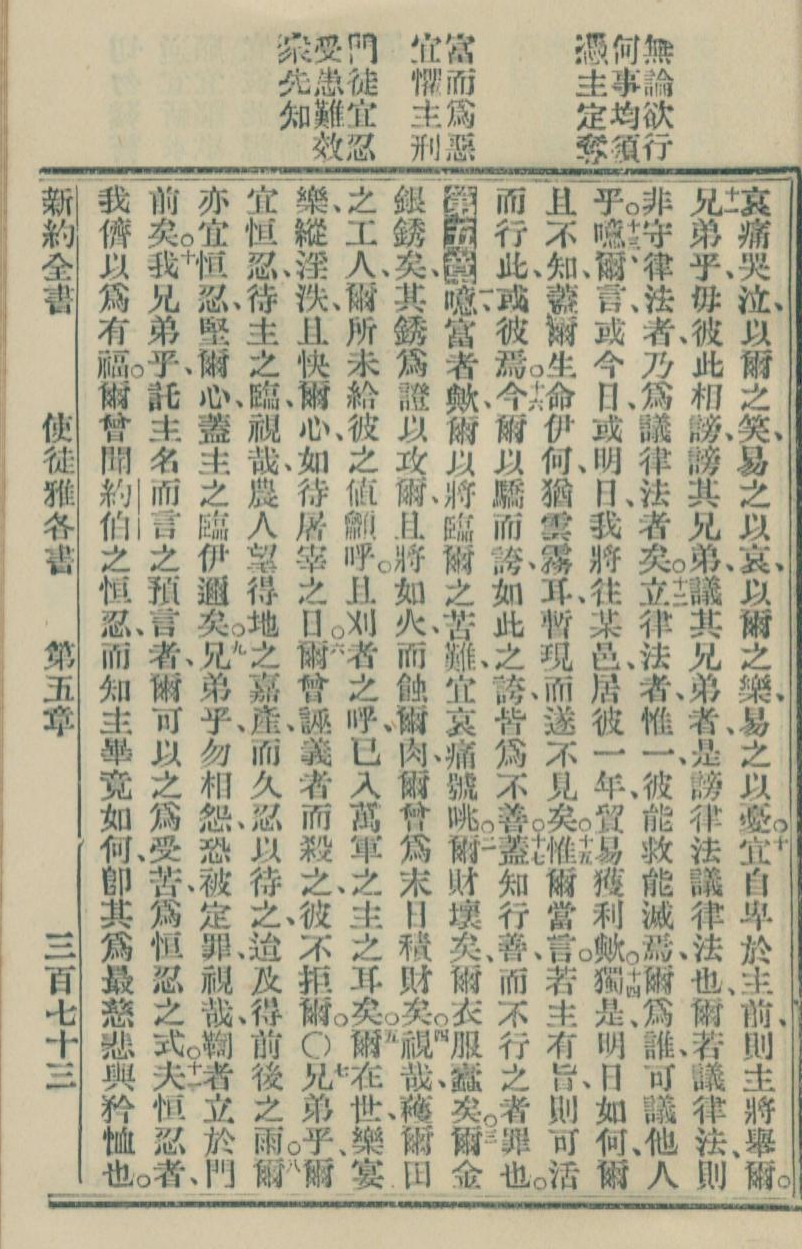 無論欲行
何事均須
憑主定奪
富而爲惡
宜懼主刑
門徒宜忍
受患難效
衆先知
哀痛哭泣、以爾之笑、易之以哀、以爾之樂、易之以憂。十宜自卑於主前、則主將舉爾。
十一兄弟乎、毋彼此相謗、謗其兄弟、議其兄弟者、是謗律法議律法也、爾若議律法、則
非守律法者、乃爲議律法者矣。十二立律法者惟一、彼能救能滅焉、爾爲誰、可議他人
乎。十三噫、爾言、或今日、或明日、我將往某邑、居彼一年、貿易獲利歟。十四獨是明日如何、爾
且不知、蓋爾生命伊何、猶雲霧耳、暫現而遂不見矣。十五惟爾當言。若主有旨、則可活
而行此、或彼焉。十六今爾以驕而誇、如此之誇、皆爲不善。十七蓋知行善、而不行之者罪也。
第五章一噫、富者歟、爾以將臨爾之苦難、宜哀痛號咷。二爾財壞矣、爾衣服蠹矣。三爾金
銀銹矣、其銹爲證以攻爾、且將如火、而蝕爾肉、爾曾爲末日積財矣。四視哉、穫爾田
之工人、爾所未給彼之値籲呼。且刈者之呼、已入萬軍之主之耳矣。五爾在世、樂宴
樂、縱淫泆、且快爾心、如待屠宰之日。六爾曾誣義者而殺之、彼不拒爾。〇七兄弟乎、爾
宜恒忍、待主之臨、視哉、農人望得地之嘉產、而久忍以待之、迨及得前後之雨。八爾
亦宜恒忍、堅爾心、蓋主之臨伊邇矣。九兄弟乎、勿相怨、恐被定罪、視哉、鞫者立於門
前矣。十我兄弟乎、託主名而言之預言者、爾可以之爲受苦、爲恒忍之式。十一夫恒忍者、
我儕以爲有福。爾曾聞約伯之恒忍、而知主畢竟如何、卽其爲最慈悲與矜恤也。
新約全書 使徒雅各書 第五章 三百七十三